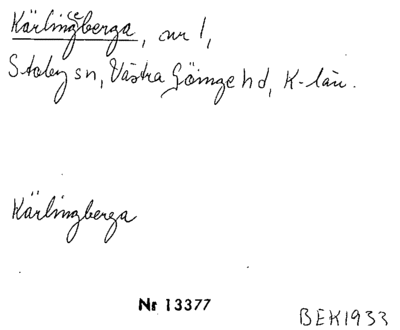 Kärling(e)berga, nr 1,
Stoby sn, Västra Göinge hd, K-län.
Kärlingberga
Nr 13377
BEK1933